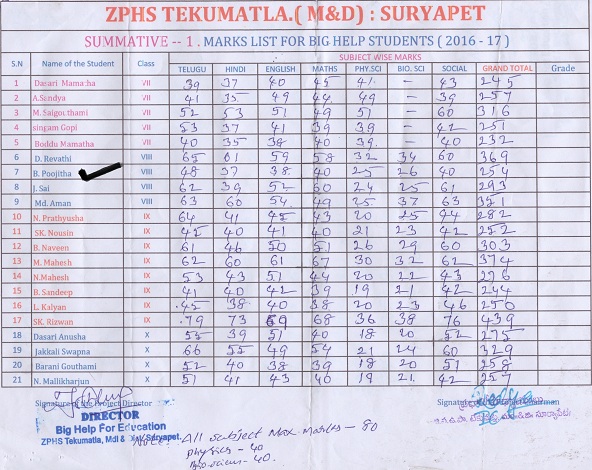 ZPHS TEKUMATLA.( M&D) : SURYAPET
SUMMATIVE -- 1 . MARKS LIST FOR BIG HELP STUDENTS ( 2016 - 17 )
S.N Name of the Student Class SUBJECT WISE MARKS GRAND TOTAL Grade
TELUGU HINDI ENGLISH MATHS PHY.SCI BIO. SCI SOCIAL
1 Dasari Mamatha VII 39 37 40 45 41 - 43 245
2 A.Sandya VII 41 35 49 44 49 - 39 257
3 M. Saigouthami VII 52 53 51 49 51 - 60 316
4 singam Gopi VII 53 37 41 39 39 - 42 251
5 Boddu Mamatha VII 40 35 38 40 39 - 40 232
6 D. Revathi VIII 65 61 59 58 32 34 60 369
7 B. Poojitha VIII 48 37 38 40 25 26 40 254
8 J. Sai VIII 62 39 52 60 24 25 61 293
9 Md. Aman VIII 63 60 54 49 25 37 63 351
10 N. Prathyusha IX 64 41 45 43 20 25 44 282
11 SK. Nousin IX 45 40 41 40 21 23 42 252
12 B. Naveen IX 61 46 50 51 26 29 60 303
13 M. Mahesh IX 62 60 61 67 30 32 62 374
14 N.Mahesh IX 53 43 51 44 20 22 43 276
15 B. Sandeep IX 41 40 42 39 19 21 42 244
16 L. Kalyan IX 45 38 40 38 20 23 46 250
17 SK. Rizwan IX 79 73 69 68 36 38 76 439
18 Dasari Anusha X 55 39 51 40 18 20 52 275
19 Jakkali Swapna X 66 55 49 54 21 24 60 329
20 Barani Gouthami X 52 40 38 39 18 20 51 258
21 N. Mallikharjun X 51 41 43 40 19 21 42 257
Signature of the Project Director
DIRECTOR
Big Help For Education
ZPHS Tekumatla, Mdl & Dist. Suryapet.
Note: All subject Max. Marks - 80
Physics - 40